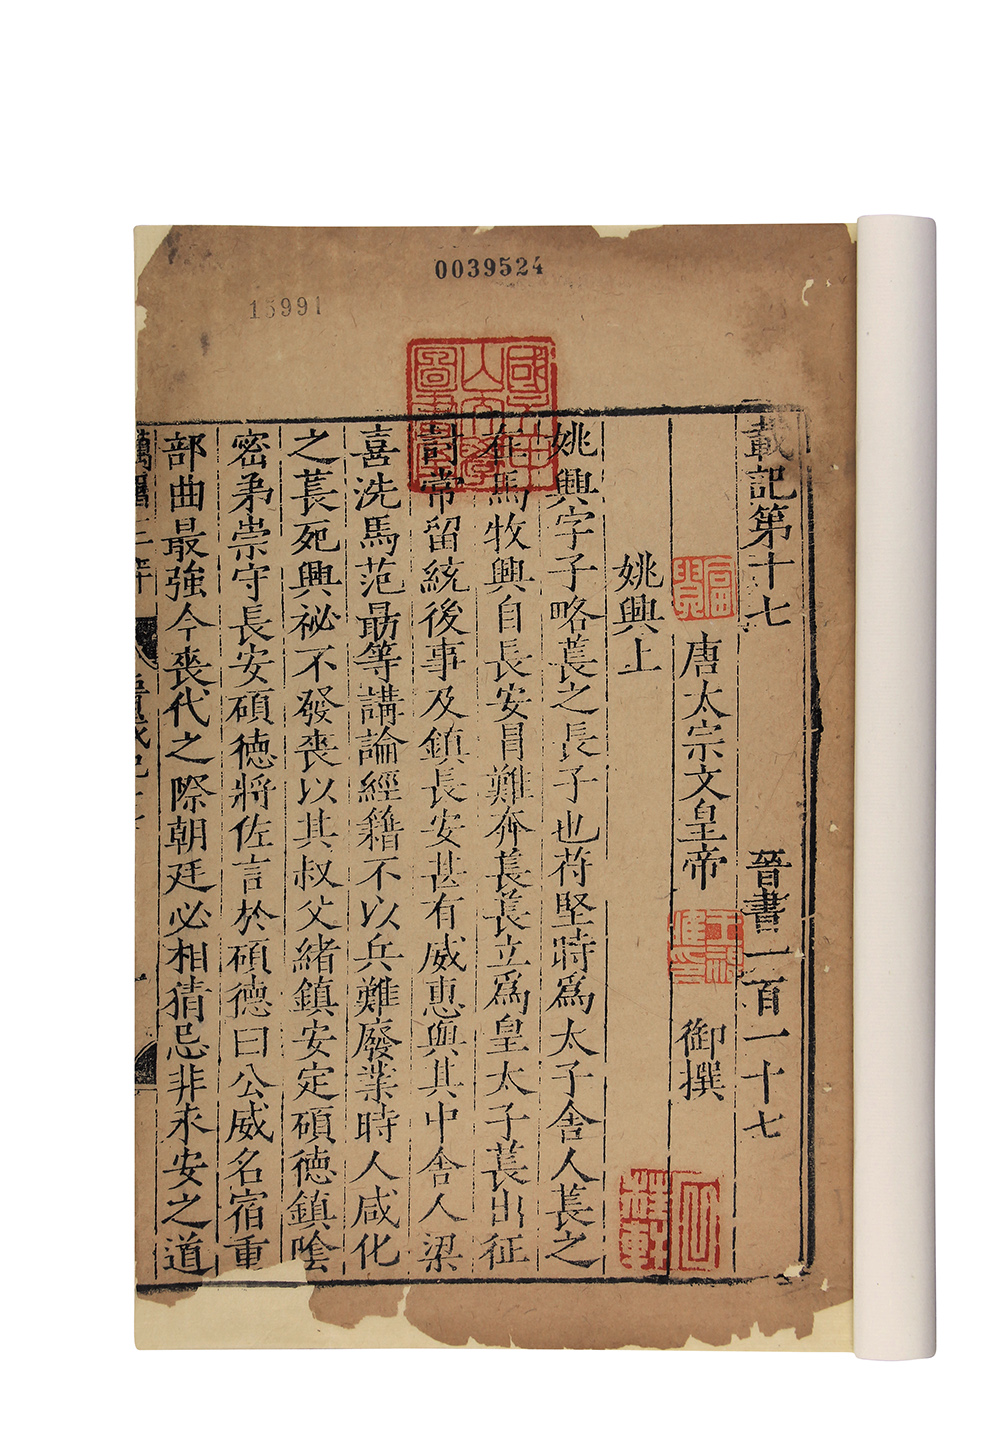 0039524
15991
載記第十七 晉書一百一十七
唐太宗文皇帝 御撰
姚興上
姚興字子略萇之長子也苻堅時爲太子舍人萇之
在馬牧興自長安冒難奔萇萇立爲皇太子萇出征
討常留統後事及鎮長安甚有威惠與其中舍人梁
喜洗馬范勗等講論經籍不以兵難廢業時人咸化
之萇死興祕不發喪以其叔父緒鎮安定碩德鎮陰
密弟崇守長安碩德將佐言於碩德曰公威名宿重
部曲最強今喪代之際朝廷必相猜忌非永安之道
萬曆三年